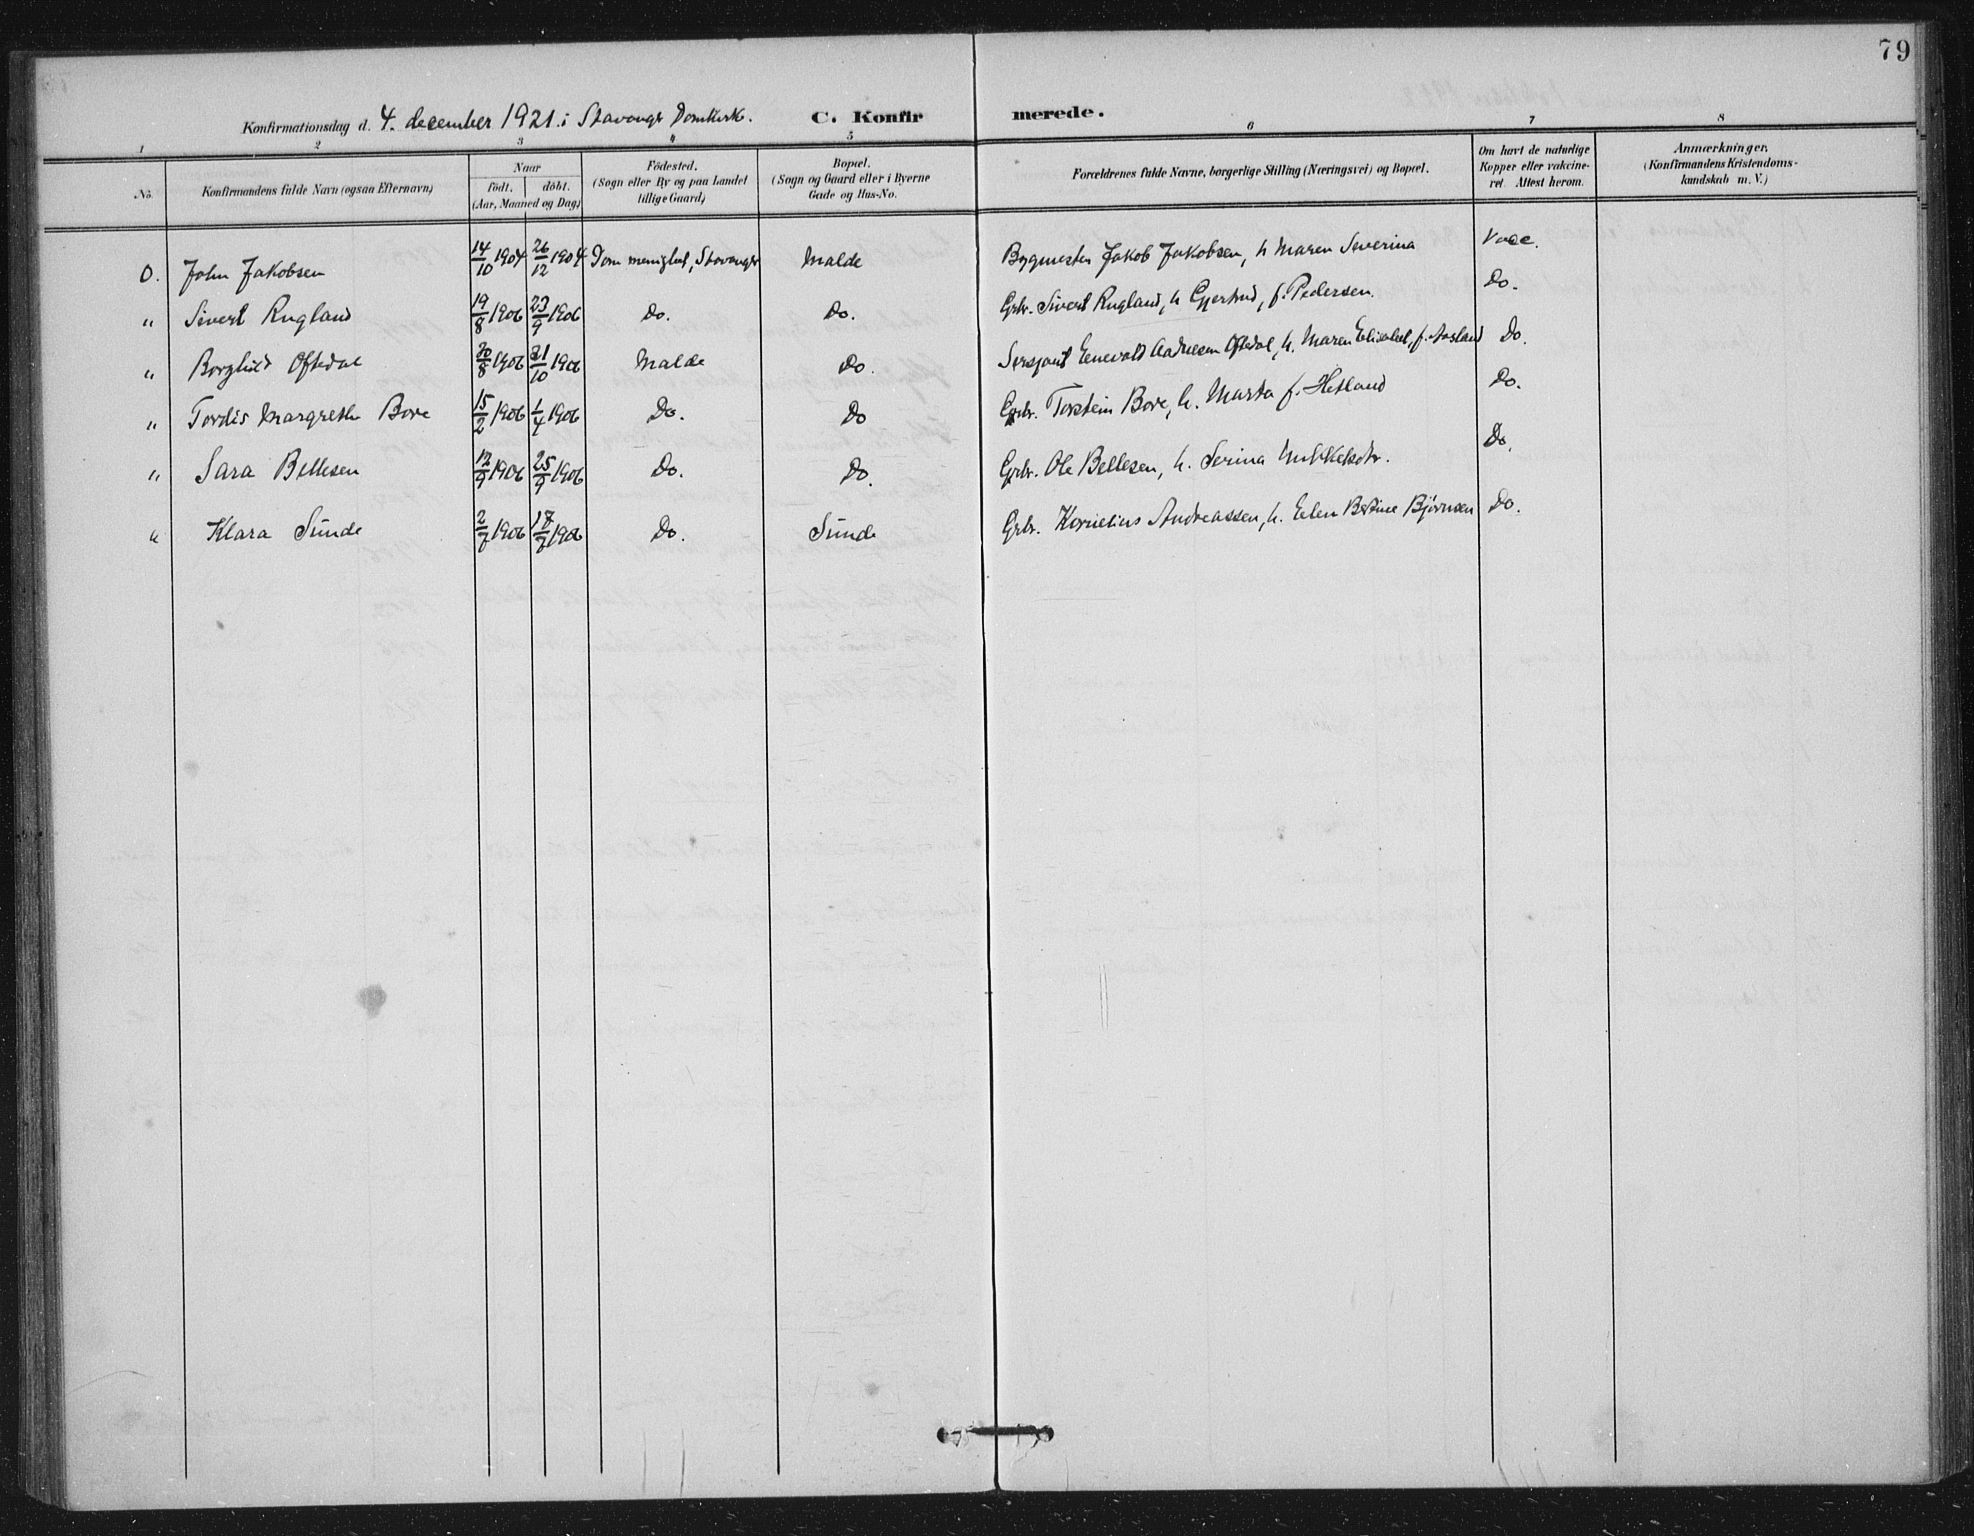 79
Konfirmationsdag d. 4. december 1921 i Stavanger Domkirk. C. Konfirmerede.
1 2 3 4 5 6 7 8
No. Konfirmandens fulde Navn (ogsaa Efternavn) Naar født. døbt. (Aar, Maaned og Dag) Fødested. (Sogn eller By og paa Landet tillige Gaard) Bopæl. (Sogn og Gaard eller i Byerne Gade og Hus-No. Forældrenes fulde Navne, borgerlige Stilling (Næringsvei) og Bopæl. Om havt de naturlige Kopper eller vakcineret. Attest herom. Anmærkninger. (Konfirmandens Kristendomskundskab m. V.)
0. John Jakobsen 14/10 1904 26/12 1904 Dom menighet, Stavanger Malde Bygmester Jakob Jakobsen, h Maren Severina Vacc.
" Sivert Rugland 19/8 1906 23/9 1906 Do. Do. Grbr. Sivert Rugland, h Gjertrud, f. Pedersen. Do.
" Borghild Oftedal 30/8 1906 21/10 1906 Malde Do. Sersjant Enevald Oftedal, h. Maren Elisabet, f. Aasland Do.
" Tordis Margrethe Bore 15/2 1906 1/4 1906 Do. Do Grbr. Torstein Bore, h. Marta f. Hetland Do.
" Sara Bellesen 12/9 1906 25/9 1906 Do. Do. Grbr. Ole Bellesen, h. Serina Do.
" Klara Sunde 2/7 1906 17/7 1906 Do. Sunde Grbr. Kornelius Andreassen, h. Elen Bertine Bjørnsen Do.